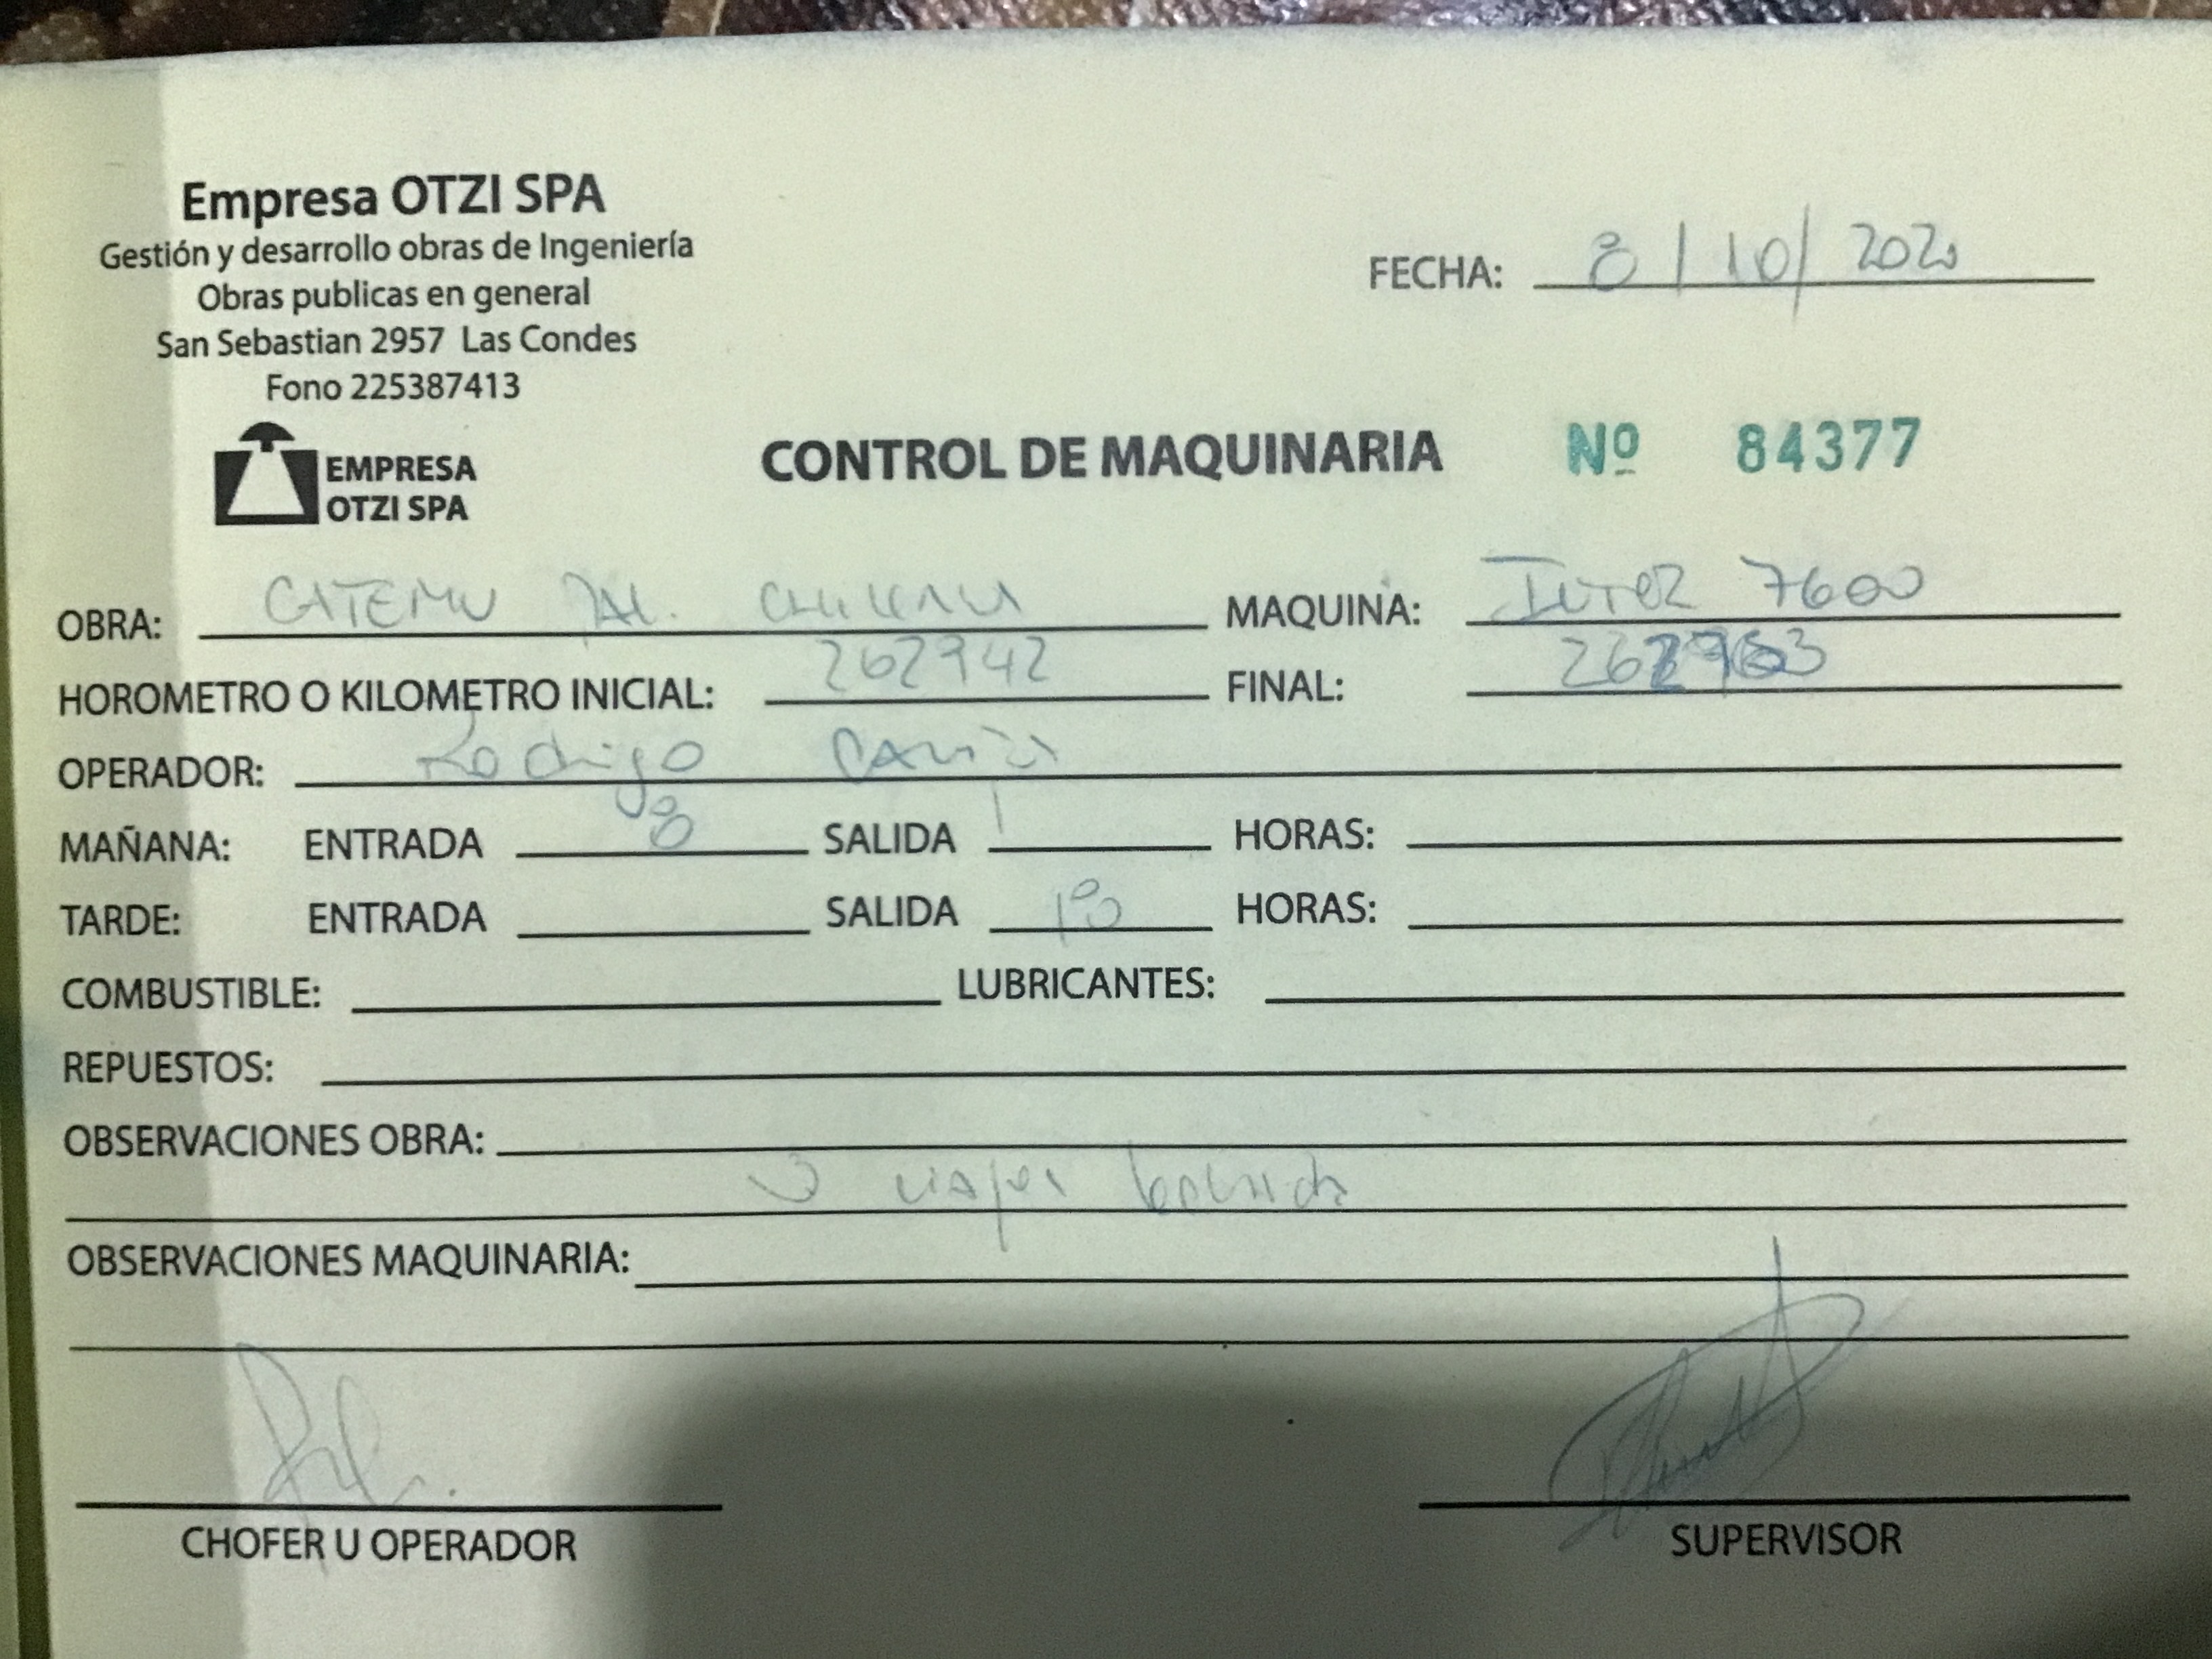 Empresa OTZI SPA
Gestión y desarrollo obras de Ingeniería
Obras publicas en general
San Sebastian 2957 Las Condes
Fono 225387413
FECHA: 8/10/2020
EMPRESA
OTZI SPA
CONTROL DE MAQUINARIA Nº 84377
OBRA: CATEMU MAQUINA: INTER 7600
HOROMETRO O KILOMETRO INICIAL: 262942 FINAL:
OPERADOR: Rodrigo
MAÑANA: ENTRADA 8 SALIDA HORAS:
TARDE: ENTRADA SALIDA 18 HORAS:
COMBUSTIBLE: LUBRICANTES:
REPUESTOS:
OBSERVACIONES OBRA:
3 viajes
OBSERVACIONES MAQUINARIA:
CHOFER U OPERADOR SUPERVISOR